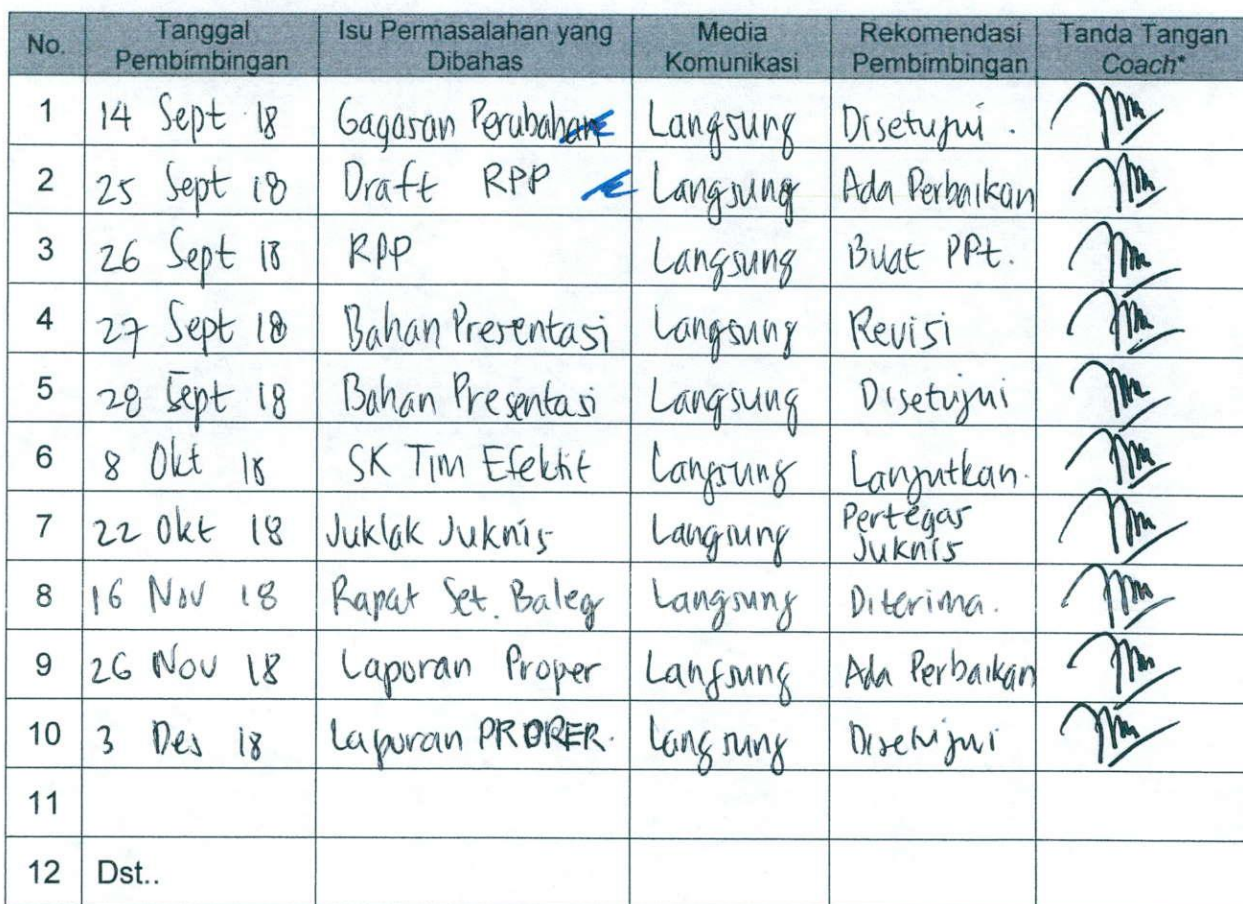 No. Tanggal Pembimbingan Isu Permasalahan yang Dibahas Media Komunikasi Rekomendasi Pembimbingan Tanda Tangan Coach*
1 14 Sept 18 Gagasan Perubahan Langsung Disetujui.
2 25 Sept 18 Draft RPP Langsung Ada Perbaikan
3 26 Sept 18 RPP Langsung Buat PPt.
4 27 Sept 18 Bahan Presentasi Langsung Revisi
5 28 Sept 18 Bahan Presentasi Langsung Disetujui
6 8 Okt 18 SK Tim Efektif Langsung Lanjutkan.
7 22 Okt 18 Juklak Juknis Langsung Pertegas Juknis
8 16 Nov 18 Rapat Set. Baleg Langsung Diterima.
9 26 Nov 18 Laporan Proper Langsung Ada Perbaikan
10 3 Des 18 Laporan PROPER. Langsung Disetujui
11
12 Dst..